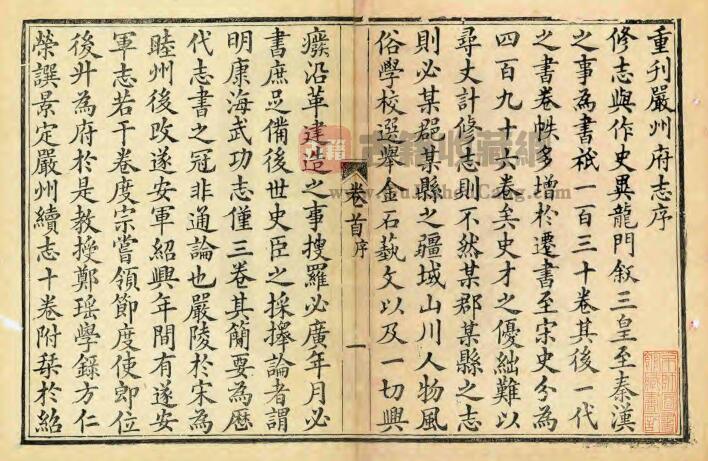 重刊嚴州府志序
修志與作史異龍門叙三皇至秦漢
之事為書祇一百三十卷其後一代
之書卷帙多增於遷書至宋史分為
四百九十六卷矣史才之優絀難以
尋丈計修志則不然某郡某縣之志
則必某郡某縣之疆域山川人物風
俗學校選舉金石藝文以及一切興
卷首 序
一
癈沿革建造之事搜羅必廣年月必
書庶足備後世史臣之採擇論者謂
明康海武功志僅三卷其簡要為歷
代志書之冠非通論也嚴陵於宋為
睦州後改遂安軍紹興年間有遂安
軍志若干卷度宗嘗領節度使即位
後升為府於是教授鄭瑶學錄方仁
榮譔景定嚴州續志十卷附栞於紹
古籍收藏网